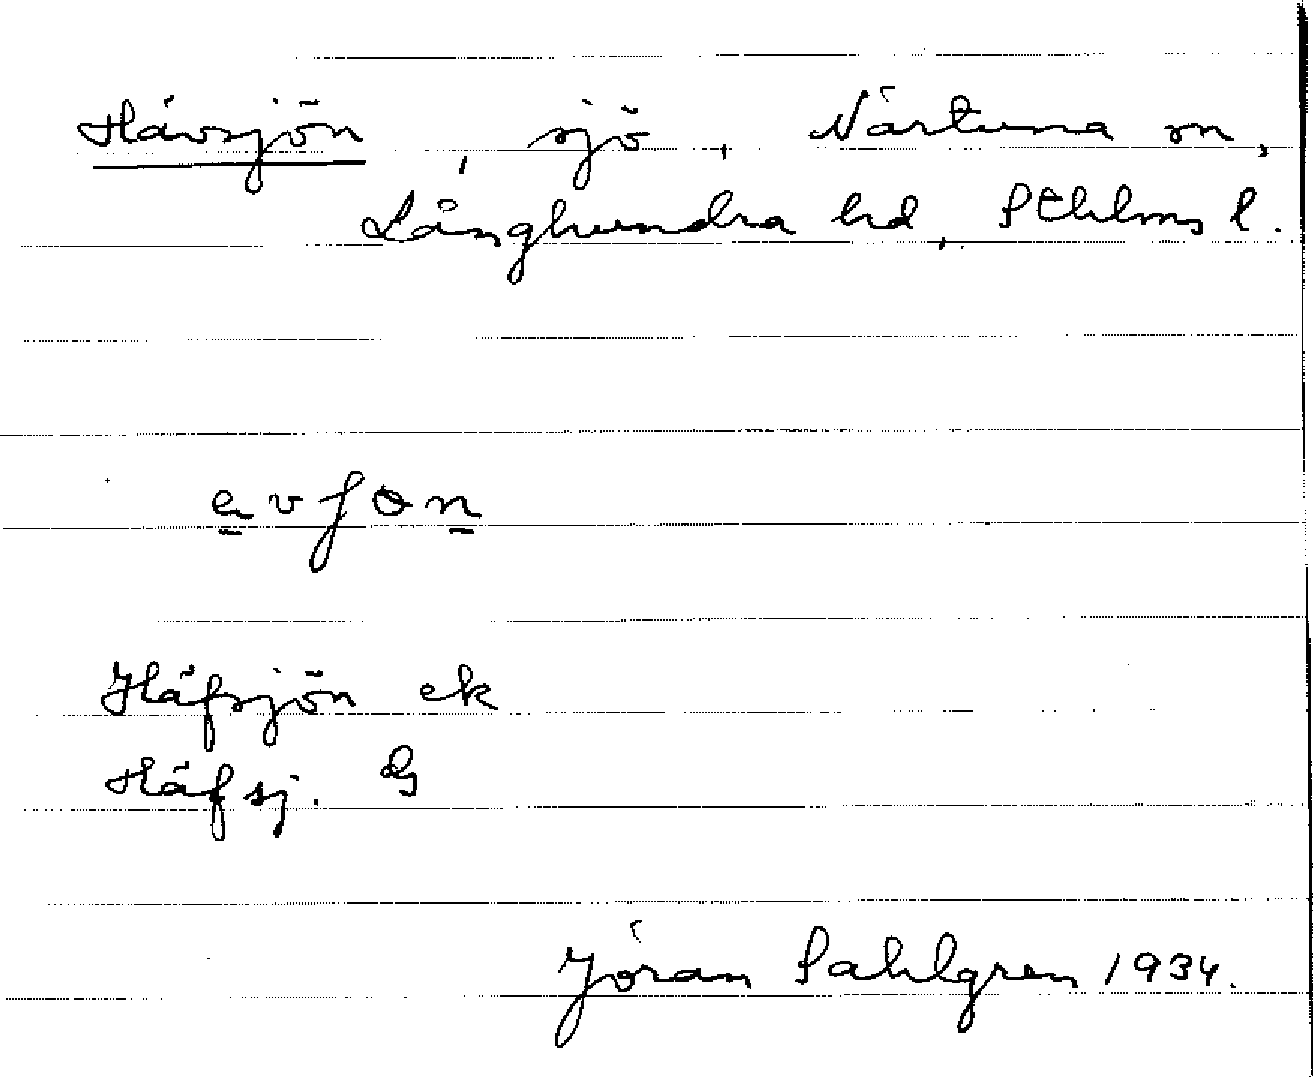 Hävsjön, sjö, Närtuna sn,
Långhundra hd, Sthlms l.
Häfsjön ek
Häfsj. G
Jöran Sahlgren 1934.